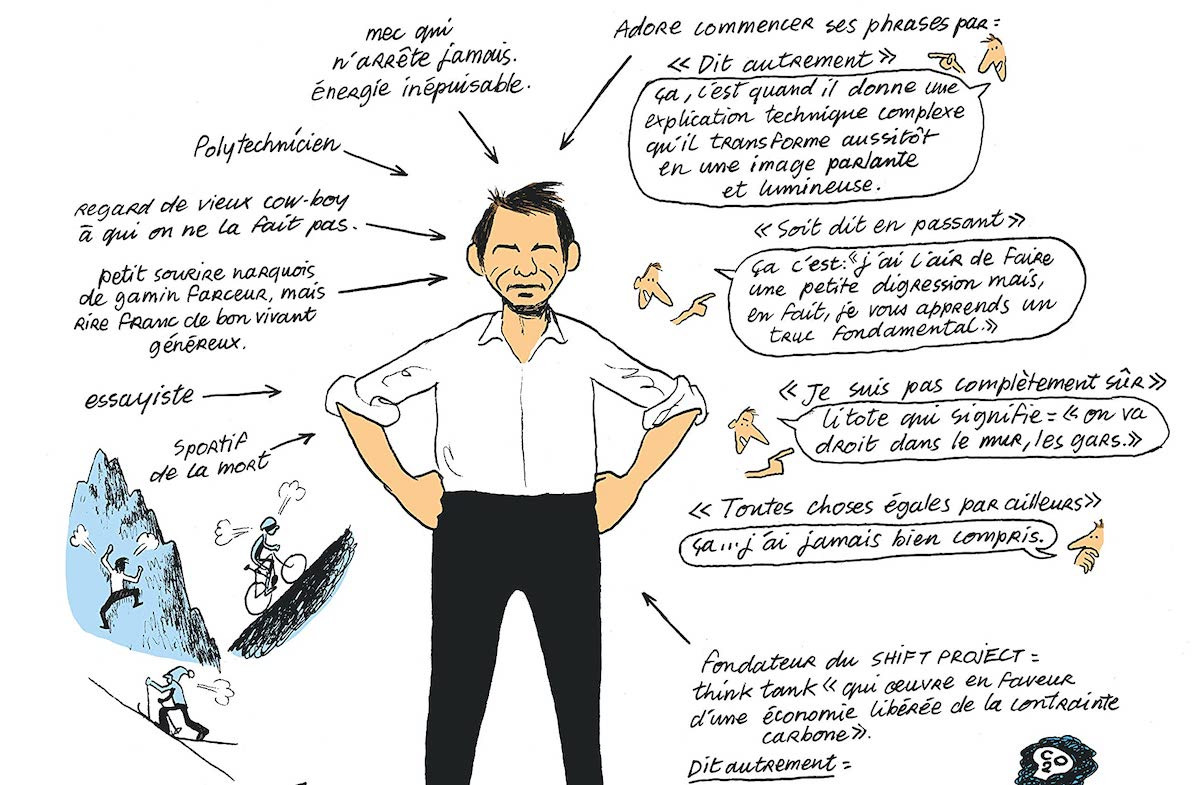 mec qui
n'arrête jamais.
énergie inépuisable.
Adore commencer ses phrases par :
« Dit autrement »
ça, c'est quand il donne une
explication technique complexe
qu'il transforme aussitôt
en une image parlante
et lumineuse.
Polytechnicien
regard de vieux cow-boy
à qui on ne la fait pas.
petit sourire narquois
de gamin farceur, mais
rire franc de bon vivant
généreux.
essayiste
sportif
de la mort
« Soit dit en passant »
ça c'est : « j'ai l'air de faire
une petite digression mais,
en fait, je vous apprends un
truc fondamental. »
« Je suis pas complètement sûr »
litote qui signifie = « on va
droit dans le mur, les gars. »
« Toutes choses égales par ailleurs »
ça... j'ai jamais bien compris.
fondateur du SHIFT PROJECT =
think tank « qui œuvre en faveur
d'une économie libérée de la contrainte
carbone ».
Dit autrement =
CO2